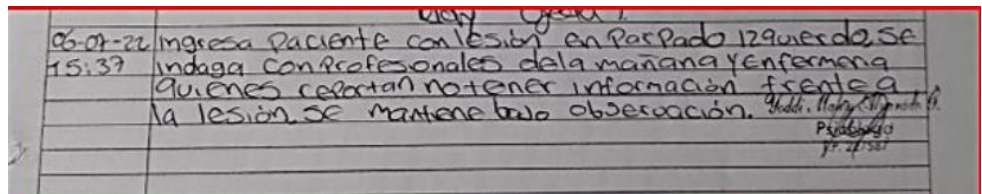 06-07-22 Ingresa paciente con lesión en Parpado izquierdo, se
15:37 indaga con Profesionales dela mañana y Enfermeria
quienes reportan no tener información frente a
la lesión. Se mantiene bajo observación.
Psicóloga